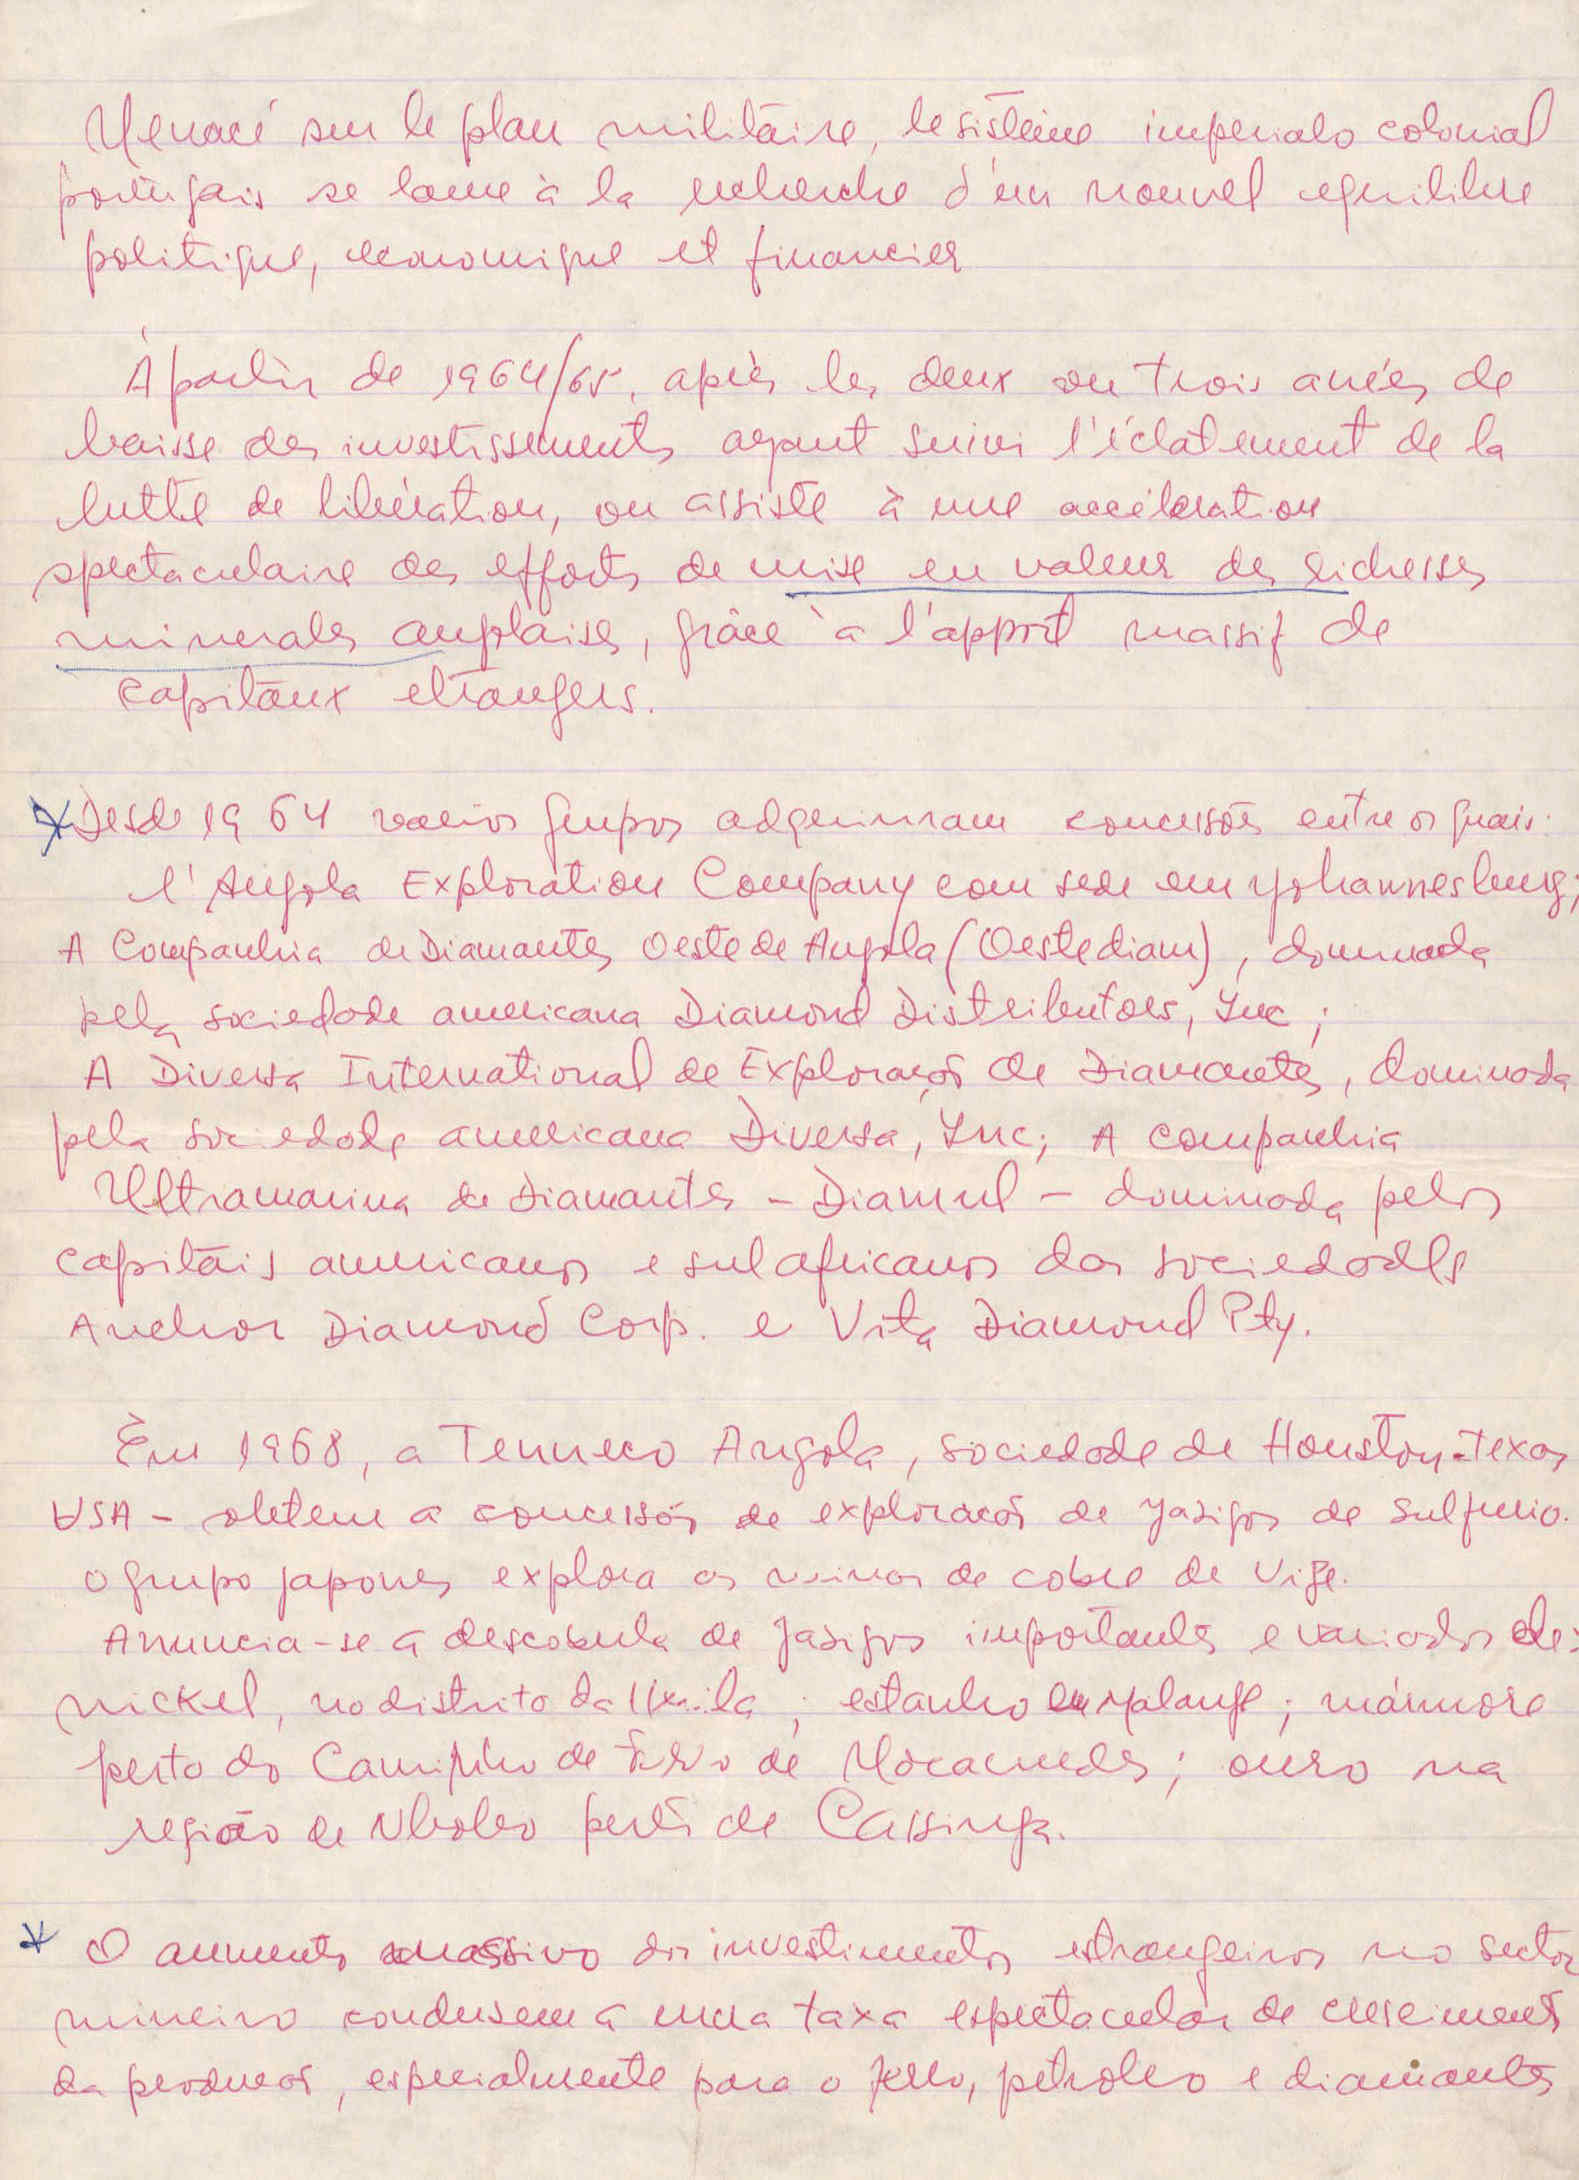 Menacé sur le plan militaire, le sistème imperialo colonial
portugais se lance à la recherche d'un nouvel equilibre
politique, economique et financier
À partir de 1964/65, après les deux ou trois anées de
baisse des investissements ayant suivi l'éclatement de la
lutte de libération, on assiste à une accéleration
spectaculaire des efforts de mise en valeur des richesses
minerales anglaises, grâce à l'apport massif de
capitaux etrangers.
* Desde 1964 varios grupos adquiriram concessões entre os quais:
l'Angola Exploration Company com sede em Yohannesburg;
A Companhia de Diamantes Oeste de Angola (Oestediam), dominada
pela sociedade americana Diamond Distributors, Inc;
A Diversa International de Exploração de Diamantes, dominada
pela sociedade americana Diversa, Inc; A companhia
Ultramarina de Diamantes - Diamul - dominada pelos
capitais americanos e sul africanos das sociedades
Anchor Diamond Corp. e Vita Diamond Pty.
Em 1968, a Tenneco Angola, sociedade de Houston-Texas
USA - obtem a concessão de exploração de jazigos de sulfurio.
o grupo japones explora as minas de cobre de Uige.
Anuncia-se a descoberta de jazigos importantes e variados de:
nickel, no distrito da Huila; estanho em Malange; mármore
perto do Caminho de Ferro de Mocamedes; ouro na
região de perto de Cassinga.
* O aumento massivo dos investimentos estrangeiros no sector
mineiro condusem a uma taxa espectacular de crescimento
da produção, especialmente para o ferro, petroleo e diamantes